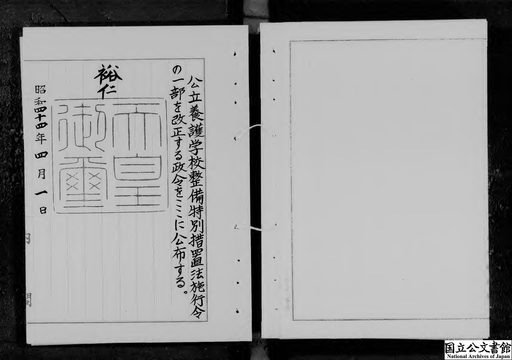 公立養護学校整備特別措置法施行令
の一部を改正する政令をここに公布する。
裕仁
天皇
御璽
昭和四十四年四月一日
国立公文書館
National Archives of Japan